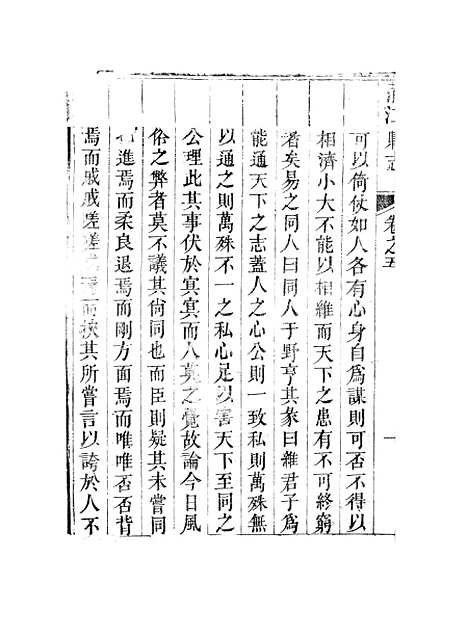 江縣志
卷之五
一
可以倚仗如人各有心身自為謀則可否不得以
相濟小大不能以相維而天下之患有不可終窮
者矣易之同人曰同人于野亨其彖曰維君子為
能通天下之志蓋人之心公則一致私則萬殊無
以通之則萬殊不一之私心足以害天下至同之
公理此其事伏於冥冥而人莫之覺故論今日風
俗之弊者莫不議其尙同也而臣則疑其未嘗同
進焉而柔良退焉而剛方面焉而唯唯否否背
焉而戚戚嗟嗟焉而挾其所嘗言以誇於人不